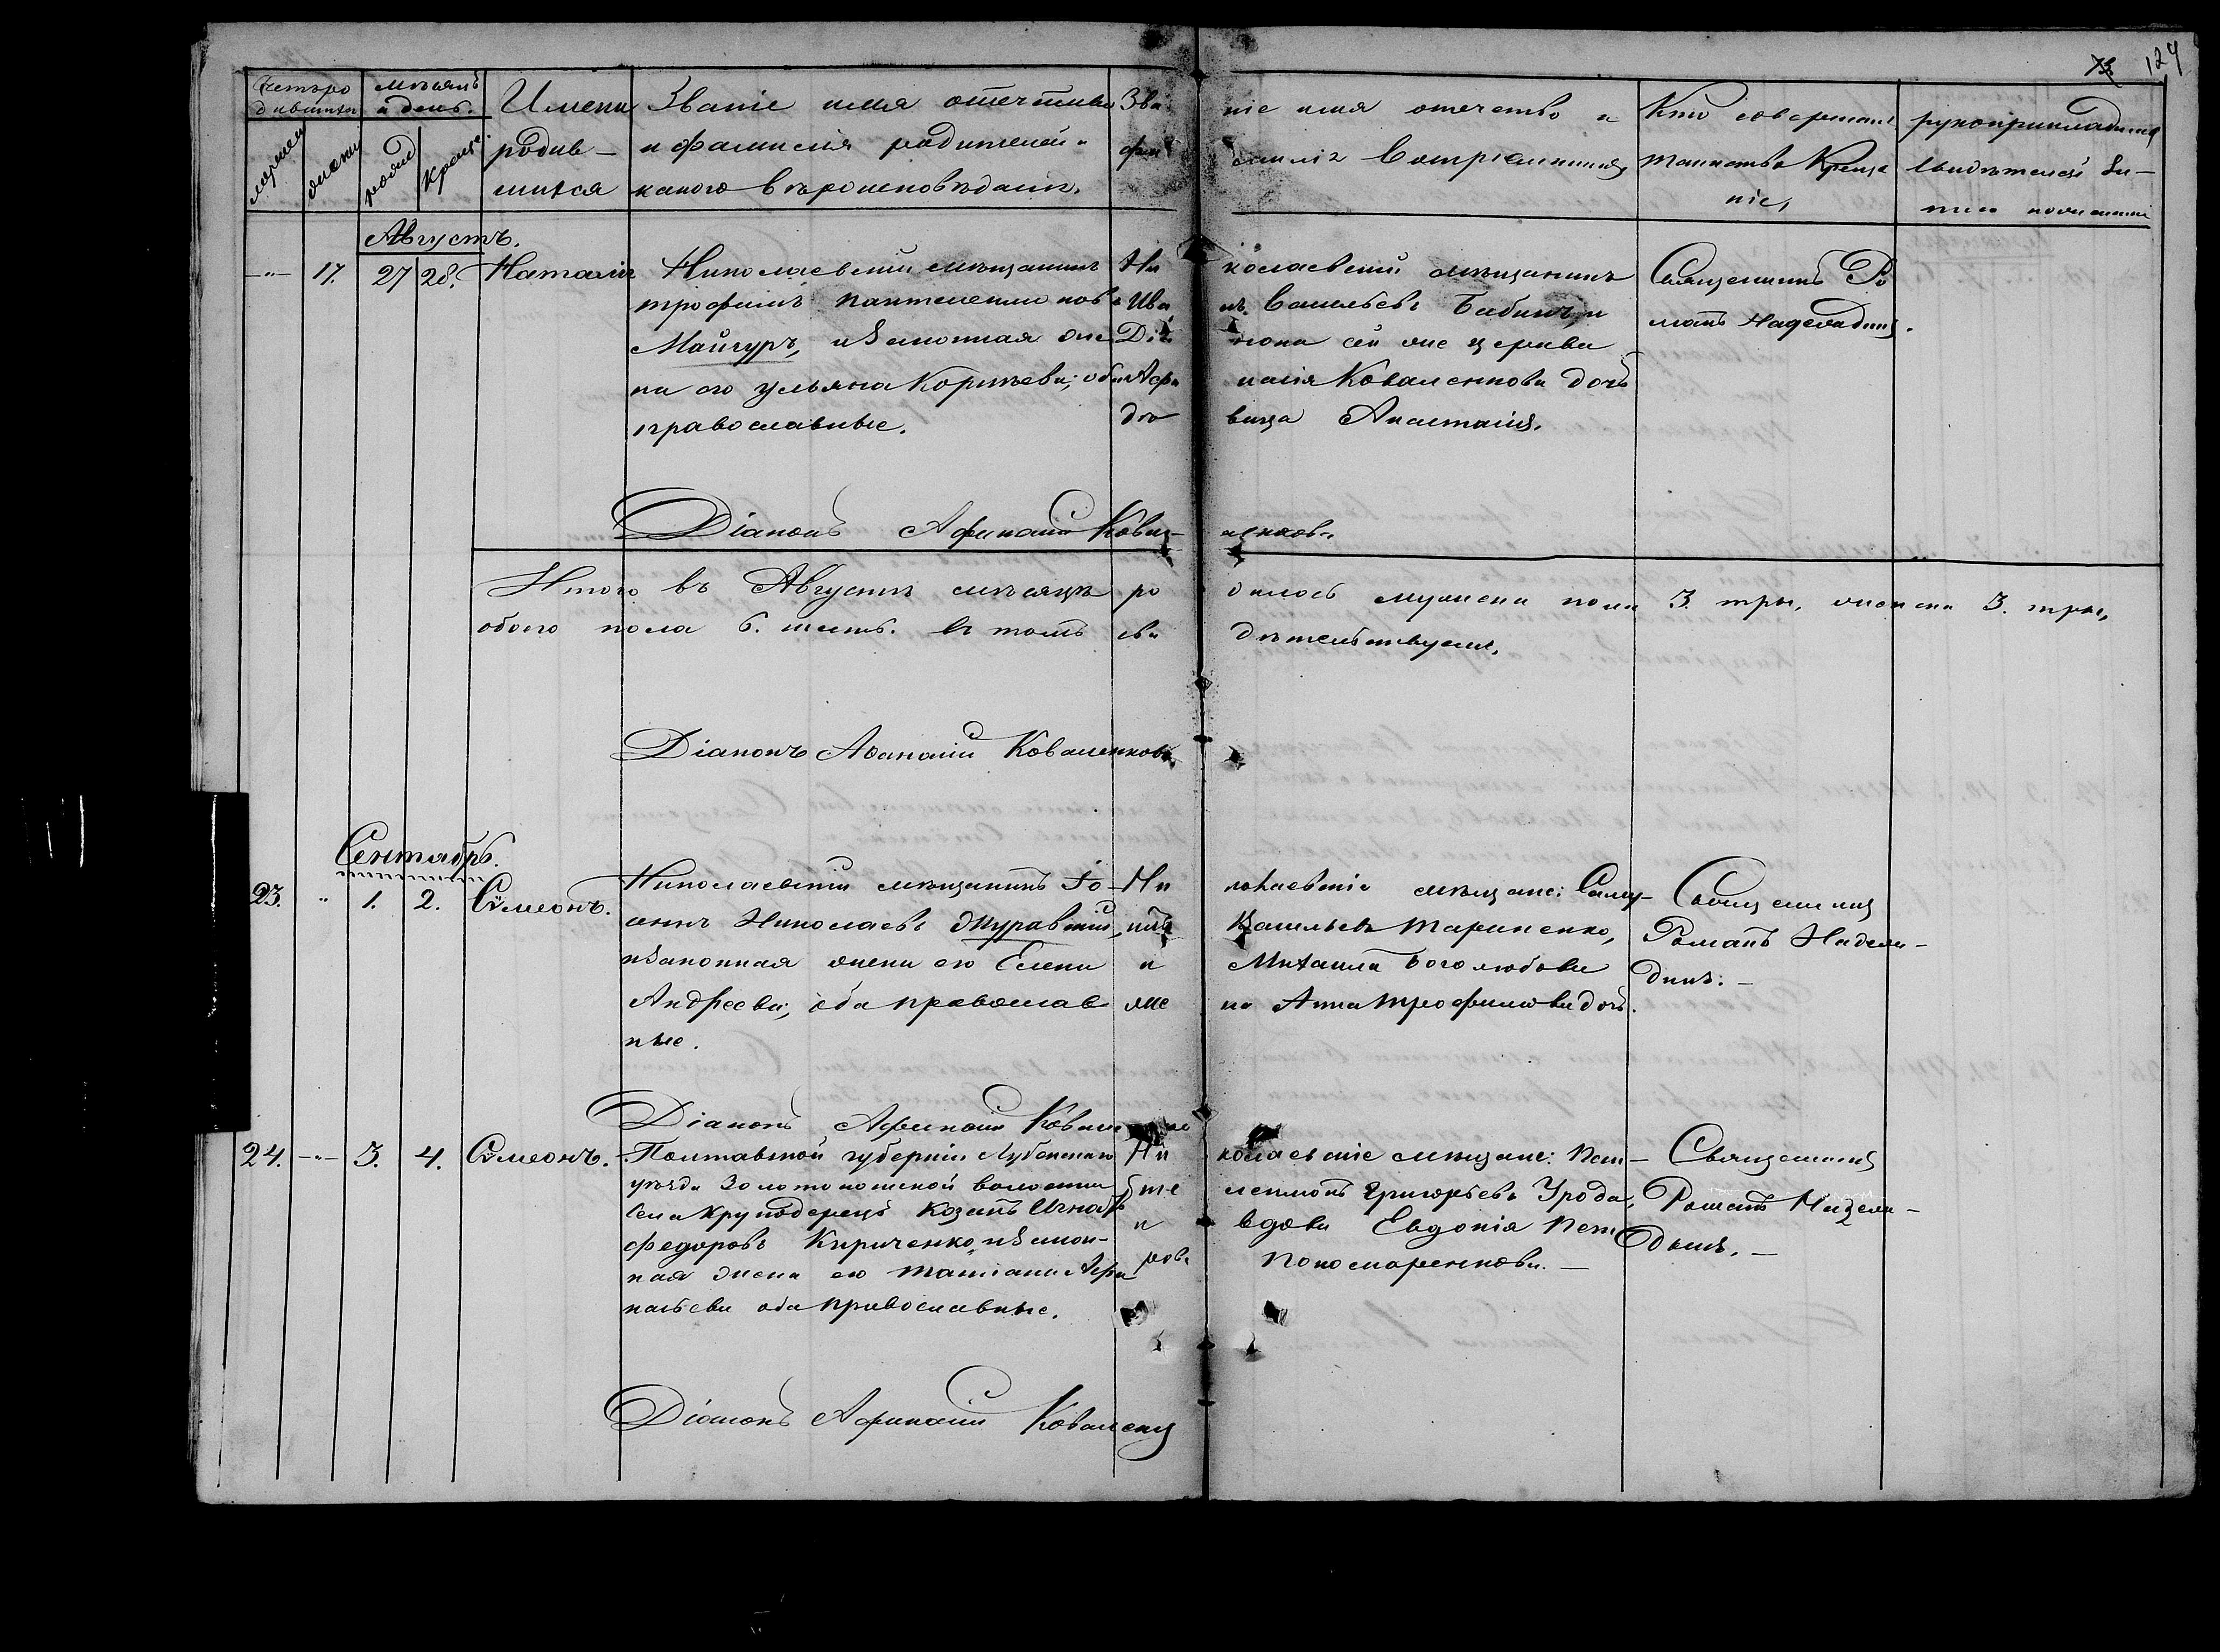 124
Счетъ ро
дившихся
Мѣсяцъ
и день.
Имена
родив-
шихся
Званіе имя отечество
и фамилія родителей и
какого вѣроисповѣданія.
Званіе имя отечество и
фамилія воспріемниковъ
Кто совершалъ
таинство Креще
ніе,
рукоприкладство
свидѣтелей за-
писи по желанію
мужеска
женска
рожд
креще.
Августъ.
-"- 17. 27 28. Наталія
Николаевскій мѣщанинъ
Трофимъ Пантелеимоновъ
Майчуръ, и законная же
на его Ульяна Корнѣева; оба
православные.
Николаевскій мѣщанинъ
Иванъ Васильевъ Бабинъ, и
Діакона сей же церкви
Афанасія Коваленкова дочь
двовица Анастасія.
Священникъ Ро
манъ Надеждинъ.
Діаконъ Афанасій Коваленковъ
Итого въ Августѣ мѣсяцѣ родилось мужеска пола 3. три, женска 3. три,
обоего пола 6. шесть. въ томъ свидѣтельствуемъ.
Діаконъ Аѳанасій Коваленковъ
Сентябрь.
23. " 1. 2. Сѵмеонъ.
Николаевскій мѣщанинъ Іо-
аннъ Николаевъ Журавскій,
и законная жена его Елена
Андреева; оба православ
ные.
Николаевскіе мѣщане: Саму-
илъ Васильевъ Тараненко,
и Михаила Боголюбова
жена Анна Трофимова дочь.
Священникъ
Романъ Надеж-
динъ. -
Діаконъ Афанасій
24. -"- 3. 4. Сѵмеонъ.
Полтавской губерніи Лубенскаго
уѣзда Золотоношской волости
села Круподеринцъ козакъ Игнатъ
Федоровъ Кириченко, и закон-
ная жена его Татіана Афа
насьева оба православные.
Николаевскіе мѣщане: Пан-
телеимонъ Григорьевъ Урода,
и вдова Евдокія Пет
рова Пономаренкова. -
Священникъ
Романъ Надеж-
динъ. -
Діаконъ Афанасій Коваленк